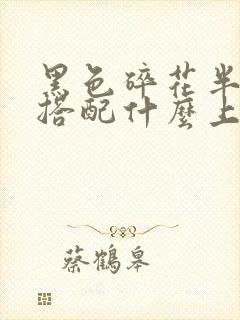 黑色碎花半
搭配什麼上
蔡鶴皋